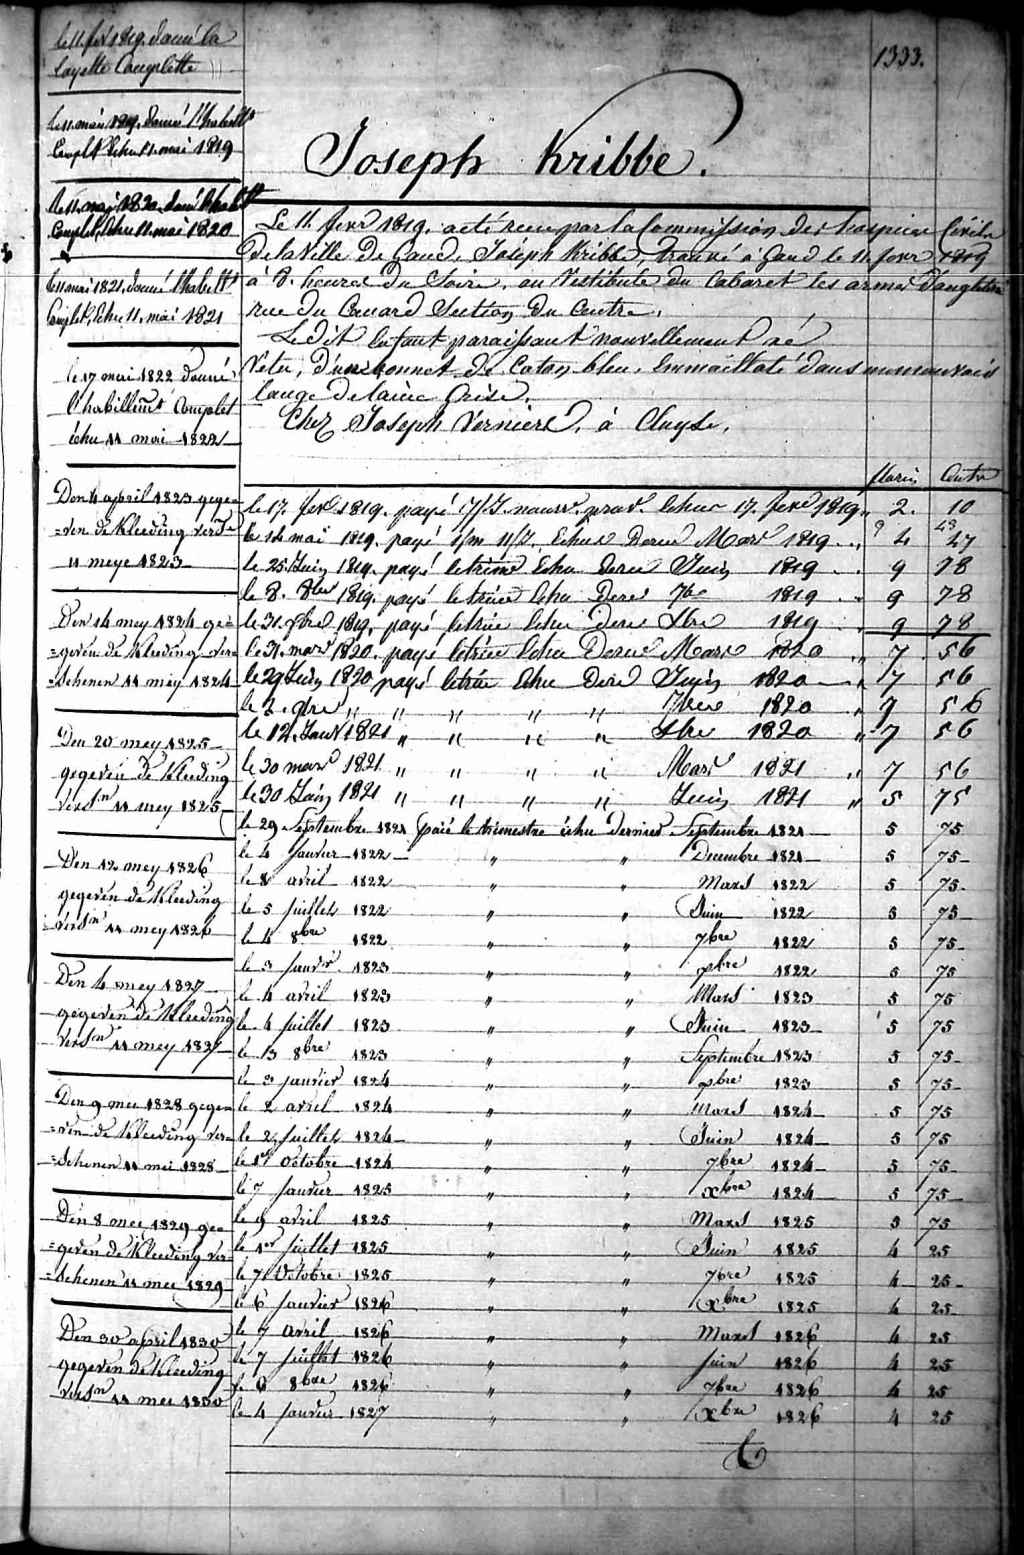 1333.
Joseph Kribbe.
le 11. fevr 1819. donné la
layette Complette
le 11. mai 1819. donné l'habellt
Complt Echu 11. mai 1819
le 11. mai 1820. donné l'habellt
Complet, Echu 11. mai 1820
le 11 mai 1821, donné l'habellt
Complet, Echu 11. mai 1821
le 17 mai 1822 donné
l'habillemt Complet
échu 11 mai 1822
Den 4 april 1823 gege=
=ven de Kleeding
11 meye 1823
Den 14 mey 1824 ge=
=geven de Kleeding ver=
=schenen 11 mey 1824
Den 20 mey 1825
gegeven de Kleeding
versn 11 mey 1825
Den 12 mey 1826
gegeven de Kleeding
versn 11 mey 1826
Den 4 mey 1827
gegeven de Kleeding
versn 11 mey 1827
Den 9 mei 1828 gege=
=ven de Kleeding ver=
=schenen 11 mei 1828
Den 8 mei 1829 ge=
=geven de Kleeding ver=
=schenen 11 mei 1829
Den 30 april 1830
gegeven de Kleeding
versn 11 mei 1830
Le 11 fevr 1819. acté reçu par la Commission des hospices Civils
De la Ville De Gand, Joseph Kribbe, trouvé à Gand le 11 fevr 1819
à 8. heures du Soire, au Vestibule du Cabaret les armes d'angleterre
rue du Canard Section Du Centre,
Le dit Enfant paraissant nouvellement né
Vetu, d'un bonnet de Coton bleu, Emmailloté dans un mauvais
lange de laine Grise.
Chez Joseph Verniers, à Cluyse,
florins Cents
le 17. fevr 1819. payé nourr. prov. Echus 17. fevr 1819 " 2. 10
le 14 mai 1819. payé Echus Dernr Mars 1819 4 47
le 25 Juin 1819. payé le trime Echu Dernr Juin 1819 9 78
le 8. 8bre 1819. payé le trime Echu Dernr 7bre 1819 9 78
le 31 1819. payé le trime Echu Dernr 1819 9 78
le 31. mars 1820. payé le trime Echu Dernr Mars 1820 " 7 56
le 29 Juin 1820 payé le trime Echu Dernr Juin 1820 " 7 56
le 7bre 1820 " 7 56
le 12. Janv 1821 " " " " 1820 " 7 56
le 30 mars 1821 " " " " Mars 1821 " 7 56
le 30 Juin 1821 " " " " Juin 1821 " 5 75
le 29 Septembre 1821 payé le trimestre échu dernier Septembre 1821 5 75
le 4 Janvier 1822 " " Decembre 1821 5 75
le 8 avril 1822 " " Mars 1822 5 75
le 5 Juillet 1822 " " Juin 1822 5 75
le 4 8bre 1822 " " 7bre 1822 5 75
le 3 Janvr 1823 " " xbre 1822 5 75
le 4 avril 1823 " " Mars 1823 5 75
le 4 Juillet 1823 " " Juin 1823 5 75
le 13 8bre 1823 " " Septembre 1823 5 75
le 3 Janvier 1824 " " xbre 1823 5 75
le 2 avril 1824 " " Mars 1824 5 75
le 2 Juillet 1824 " " Juin 1824 5 75
le 1er Octobre 1824 " " 7bre 1824 5 75
le 7 Janvier 1825 " " xbre 1824 5 75
le 9 avril 1825 " " Mars 1825 5 75
le 1er Juillet 1825 " " Juin 1825 4 25
le 7 Octobre 1825 " " 7bre 1825 4 25
le 6 Janvier 1826 " " xbre 1825 4 25
le 7 avril 1826 " " Mars 1826 4 25
le 7 Juillet 1826 " " Juin 1826 4 25
le 6 8bre 1826 " " 7bre 1826 4 25
le 4 Janvier 1827 " " xbre 1826 4 25